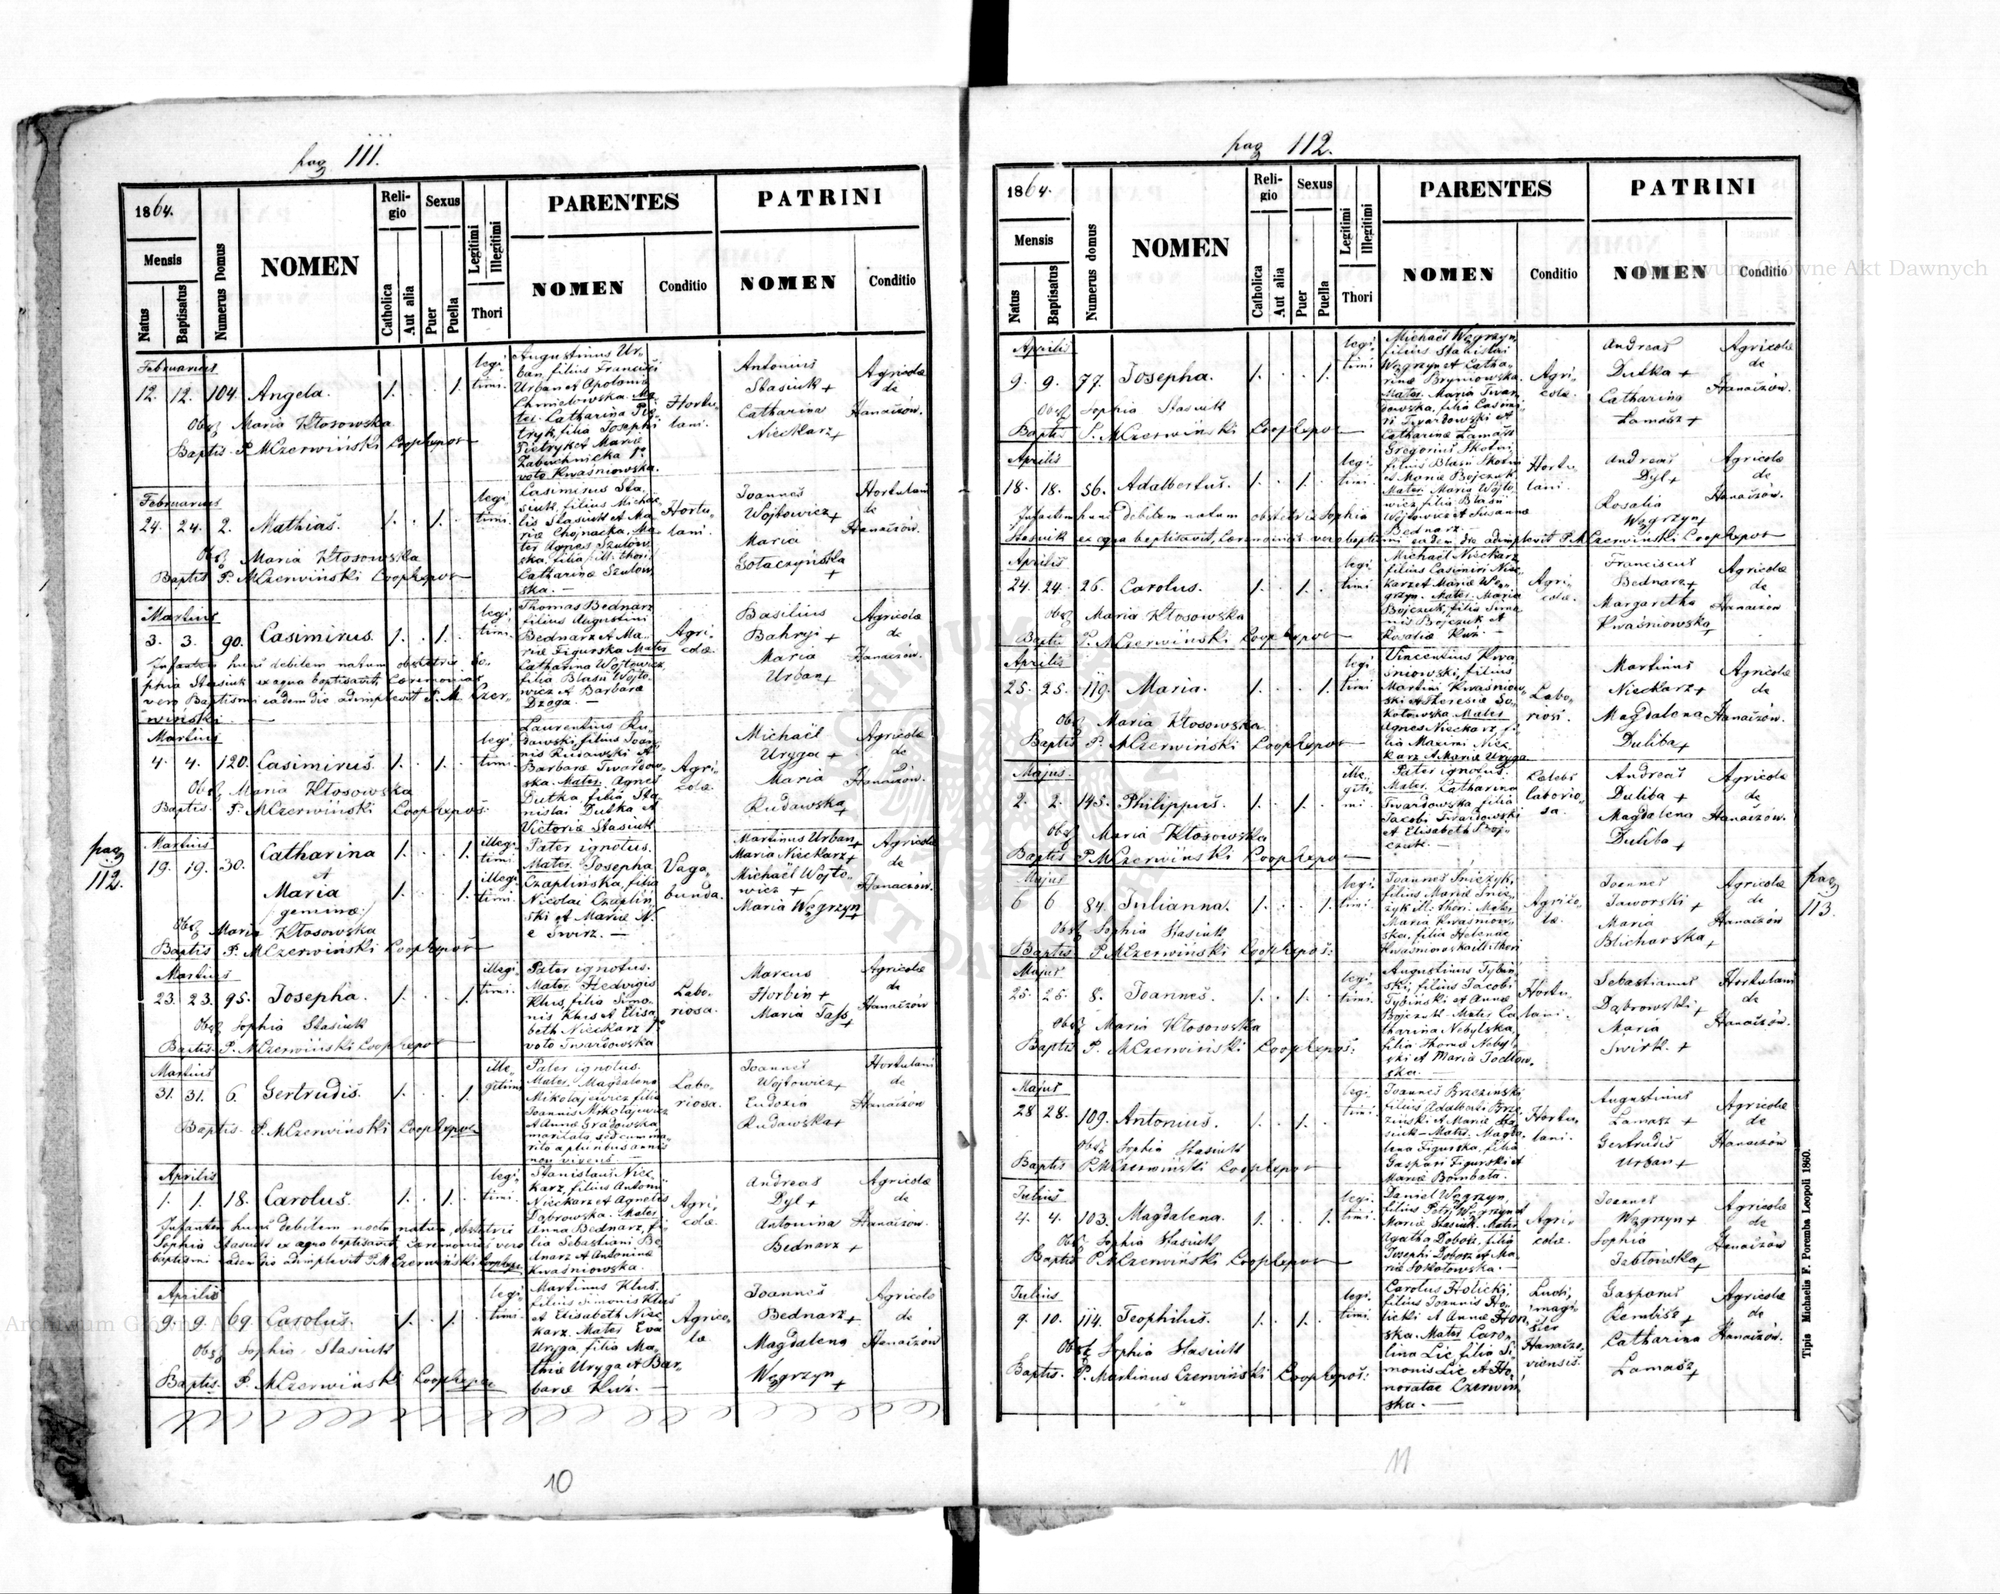 pag 111.
1864.
Mensis
Natus
Baptisatus
Numerus Domus
NOMEN
Reli-
gio
Catholica
Aut alia
Sexus
Puer
Puella
Legitimi
Illegitimi
Thori
PARENTES
NOMEN
Conditio
PATRINI
NOMEN
Conditio
Februarius
12. 12. 104. Angela. 1. 1. legi-
timi.
Obst Maria Kłosowska
Baptis. P. MCzerwiński Coop
Augustinus Ur-
ban, filius Francisci
Urban et Apolonia
Chmielowska. Ma-
ter. Catharina Pie-
tryk, filia Josephi
Pietryk et Maria
voto Kwaśniowska.
Hortu-
lani.
Antonius
Stasiuk +
Catharina
Nieckarz +
Agricolæ
de
Hanaczów.
Februarius
24. 24. 2. Mathias. 1. 1. legi-
timi.
Obst Maria Kłosowska
Baptis P. MCzerwiński Coop
Casimirus Sta-
siuk, filius Micha-
lis Stasiuk et Ma-
ria Chojnacka, Ma-
ter Agnes Szulow-
ska, filia ill: thori
Catharinæ Szulow-
ska. —
Hortu-
lani.
Joannes
Wojtowicz +
Maria
Gołaczyńska
+
Hortulani
de
Hanaczów.
Martius
3. 3. 90. Casimirus. 1. 1. legi-
timi.
Infantem hunc debilem natum obstetrix So-
phia Stasiuk ex aqua baptisavit, Cæremonias
vero Baptismi eadem die adimplevit P. M. Czer-
wiński —
Thomas Bednarz
filius Augustini
Bednarz et Ma-
riæ Figurska Mater
Catharina Wojtowicz,
filia Blasii Wojto-
wicz et Barbaræ
Dzoga. —
Agri-
colæ.
Basilius
Bahryj +
Maria
Urban +
Agricolæ
de
Hanaczów.
Martius
4. 4. 120. Casimirus. 1. 1. legi-
timi.
Obst Maria Kłosowska
Baptis P. MCzerwiński Coop
Laurentius Ru-
dawski, filius Joan-
nis Rudawski et
Barbaræ Twardow-
ska. Mater. Agnes
Dutka, filia Sta-
nislai Dutka et
Victoriæ Stasiuk
Agri-
colæ.
Michaël
Uryga +
Maria
Rudawska +
Agricolæ
de
Hanaczów.
pag
112.
Martius
19. 19. 30. Catharina 1. 1. illegi-
timi.
et
Maria 1. 1. illegi-
timi.
geminæ.
Obst Maria Kłosowska
Baptis P. MCzerwiński Coop
Pater ignotus.
Mater. Josepha
Czaplińska, filia
Nicolai Czapliń-
ski et Mariæ
Swirz. —
Vaga-
bunda.
Martinus Urban +
Maria Nieckarz +
Michaël Wojto-
wicz +
Maria Węgrzyn +
Agricolæ
de
Hanaczów.
Martius
23. 23. 95. Josepha. 1. 1. illegi-
timi.
Obst Sophia Stasiuk
Baptis. P. MCzerwiński Coop
Pater ignotus.
Mater Hedvigis
Klus, filia Simo-
nis Klus et Elisa-
beth Nieckarz
voto Twardowska
Labo-
riosa.
Marcus
Horbin +
Maria Tass +
Agricolæ
de
Hanaczów
Martius
31. 31. 6. Gertrudis. 1. 1. ille-
gitimi
Baptis. P. MCzerwiński Coop
Pater ignotus.
Mater. Magdalena
Mikołajewicz filia
Joannis Mikołajewicz
et Annæ Gradowska,
maritata, sed cum ma-
rito a pluribus annis
non vivens —
Labo-
riosa.
Joannes
Wojtowicz +
Eudoxia
Rudawska +
Hortulani
de
Hanaczów
Aprilis
1. 1. 18. Carolus. 1. 1. legi-
timi.
Infantem hunc debilem nocte natum, obstetrix
Sophia Stasiuk ex aqua baptisavit, Cæremonias vero
baptismi eadem die adimplevit P. M Czerwiński
Stanislaus Niec-
karz, filius Antonii
Nieckarz et Agnetis
Dąbrowska. Mater
Anna Bednarz, fi-
lia Sebastiani Be-
dnarz et Antoninæ
Kwaśniowska.
Agri-
colæ.
Andreas
Dyl +
Antonina
Bednarz +
Agricolæ
de
Hanaczów.
Aprilis
9. 9. 69. Carolus. 1. 1. legi-
timi.
Obst Sophia Stasiuk
Baptis. P. MCzerwiński Coop
Martinus Klus,
filius Simonis Klus
et Elisabeth Niec-
karz. Mater Eva
Uryga, filia Ma-
thiæ Uryga et Bar-
baræ Kuź. —
Agrico-
læ.
Joannes
Bednarz +
Magdalena
Węgrzyn +
Agricolæ
de
Hanaczów
10
pag 112.
1864.
Mensis
Natus
Baptisatus
Numerus domus
NOMEN
Reli-
gio
Catholica
Aut alia
Sexus
Puer
Puella
Legitimi
Illegitimi
Thori
PARENTES
NOMEN
Conditio
PATRINI
NOMEN
Conditio
Aprilis
9. 9. 77. Josepha. 1. 1. legi-
timi
Obst Sophia Stasiuk
Baptis P. MCzerwiński Coop
Michaël Węgrzyn,
filius Stanislai
Węgrzyn et Catha-
rinæ Bryniowska.
Mater. Maria Twar-
dowska, filia Casimi-
ri Twardowski et
Catharinæ Łamasz
Agri-
colæ.
Andreas
Dutka +
Catharina
Łamasz +
Agricolæ
de
Hanaczów.
Aprilis
18. 18. 56. Adalbertus. 1. 1. legi-
timi.
Infantem hunc debilem natum obstetrix Sophia
Stasiuk ex aqua baptisavit, Cæremonias vero baptismi eadem die adimplevit P. MCzerwiński Coop
Gregorius Skotni
filius Blasii Skotni
et Mariæ Bojczuk.
Mater. Maria Wojto-
wicz, filia Blasii
Wojtowicz et Susannæ
Bednarz. —
Hortu-
lani.
Andreas
Dyl +
Rosalia
Węgrzyn +
Agricolæ
de
Hanaczów.
Aprilis
24. 24. 26. Carolus. 1. 1. legi-
timi
Obst Maria Kłosowska
Baptis P. MCzerwiński Coop
Michaël Nieckarz
filius Casimiri Niec-
karz et Mariæ Wę-
grzyn. Mater. Maria
Bojczuk, filia Simo-
nis Bojczuk et
Rosaliæ Kuź. —
Agri-
colæ.
Franciscus
Bednarz +
Margaretha
Kwaśniowska +
Agricolæ
de
Hanaczów
Aprilis
25. 25. 119. Maria. 1. 1. legi-
timi
Obst Maria Kłosowska
Baptis P. MCzerwiński Coop
Vincentius Kwa-
śniowski, filius
Martini Kwaśniow-
ski et Theresiæ So-
kołowska. Mater
Agnes Nieckarz, fi-
lia Maximi Niec-
karz et Mariæ Uryga.
Labo-
riosi.
Martinus
Nieckarz +
Magdalena
Duliba +
Agricolæ
de
Hanaczów.
Majus.
2. 2. 145. Philippus. 1. 1. ille-
giti-
mi.
Obst Maria Kłosowska
Baptis P. MCzerwiński Coop
Pater ignotus.
Mater. Catharina
Twardowska filia
Jacobi Twardowski
et Elisabeth Boj-
czuk. —
Cælebs
laborio-
sa.
Andreas
Duliba +
Magdalena
Duliba +
Agricolæ
de
Hanaczów.
pag
113.
Majus
6 6 84. Julianna. 1. 1. legi-
timi.
Obst Sophia Stasiuk
Baptis P. MCzerwiński Coop
Joannes Snieżyk,
filius Mariæ Snie-
żyk ill: thori. Mater
Maria Kwaśniow-
ska, filia Helenæ
Kwaśniowska ill: thori
Agrico-
læ.
Joannes
Jaworski +
Maria
Blicharska +
Agricolæ
de
Hanaczów
Majus
25. 25. 8. Joannes. 1. 1. legi-
timi.
Obst Maria Kłosowska
Baptis P. MCzerwiński Coop
Augustinus Tybiń-
ski, filius Jacobi
Tybiński et Annæ
Bojczuk. Mater Ca-
tharina Nebylska,
filia Thomæ Nebyl-
ski et Maria Podlow-
ska. —
Hortu-
lani.
Sebastianus
Dąbrowski +
Maria
Swirk. +
Hortulani
de
Hanaczów.
Majus
28 28. 109. Antonius. 1. 1. legi-
timi.
Obst Sophia Stasiuk
Baptis P. MCzerwiński Coop
Joannes Brzezinski
filius Adalberti Brze-
zinski et Mariæ Sta-
siuk — Mater. Magda-
lena Figurska, filia
Gaspari Figurski et
Mariæ Bombata.
Hortu-
lani.
Augustinus
Łamasz +
Gertrudis
Urban +
Agricolæ
de
Hanaczów
Julius
4. 4. 103. Magdalena. 1. 1. legi-
timi.
Obst Sophia Stasiuk
Baptis P. MCzerwiński Coop
Daniel Węgrzyn,
filius Petri Węgrzyn et
Mariæ Stasiuk. Mater
Agatha Dobosz, filia
Josephi Dobosz et Ma-
riæ Sokołowska. —
Agri-
colæ.
Joannes
Węgrzyn +
Sophia
Jabłońska +
Agricolæ
de
Hanaczów
Julius
9. 10. 114. Teophilus. 1. 1. legi-
timi.
Obst Sophia Stasiuk
Baptis. P. Martinus Czerwiński Coop
Carolus Holicki,
filius Joannis Ho-
licki et Annæ Hon-
ska. Mater Caro-
lina Lic, filia Si-
monis Lic et Ho-
noratæ Czerwiń-
ska. —
Ludi,
magi-
ster
Hanaczo-
viensis.
Gasparus
Rembisz +
Catharina
Łamasz +
Agricolæ
de
Hanaczów.
Tipis Michaelis F. Poremba Leopoli 1860.
11
Archiwum Główne Akt Dawnych
Archiwum Główne Akt Dawnych
ARCHIWUM GŁÓWNE AKT DAWNYCH